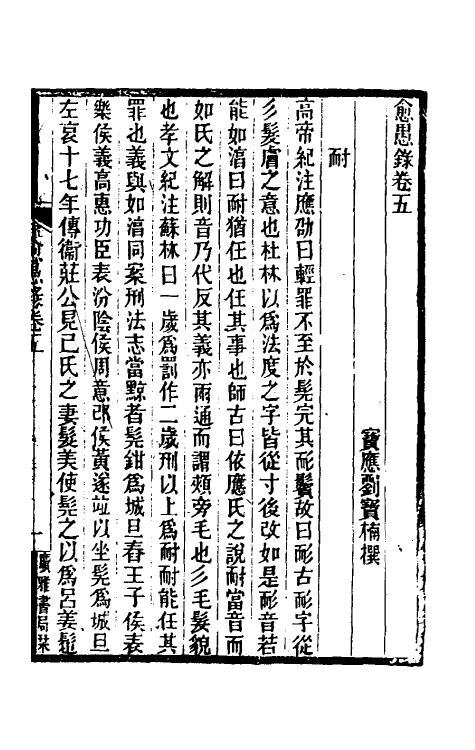 愈愚錄卷五
寶應劉寶楠撰
耐
高帝紀注應劭曰輕罪不至於髡完其耏鬢故曰耏古耏字從
彡髮膚之意也杜林以爲法度之字皆從寸後改如是耏音若
能如淳曰耐猶任也任其事也師古曰依應氏之說耐當音而
如氏之解則音乃代反其義亦兩通而謂頰旁毛也彡毛髮貌
也孝文紀注蘇林曰一歲爲罰作二歲刑以上爲耐耐能任其
罪也義與如淳同案刑法志當黥者髡鉗爲城旦舂王子侯表
樂侯義高惠功臣表汾陰侯周意邔侯黃遂竝以坐髡爲城旦
左哀十七年傳衞莊公見己氏之妻髮美使髡之以爲呂姜髢
一
廣雅書局栞